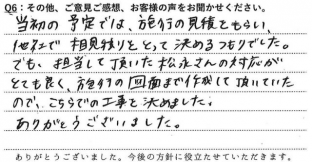 Q6:その他、ご意見ご感想、お客様の声をお聞かせください。
当初の予定では、施行の見積をもらい、
他社で相見積りをとって決めるつもりでした。
でも、担当して頂いた松永さんの対応が
とても良く、施行の図面まで作成して頂いていた
ので、こちらでの工事を決めました。
ありがとうございました。
ありがとうございました。今後の方針に役立たせていただきます。